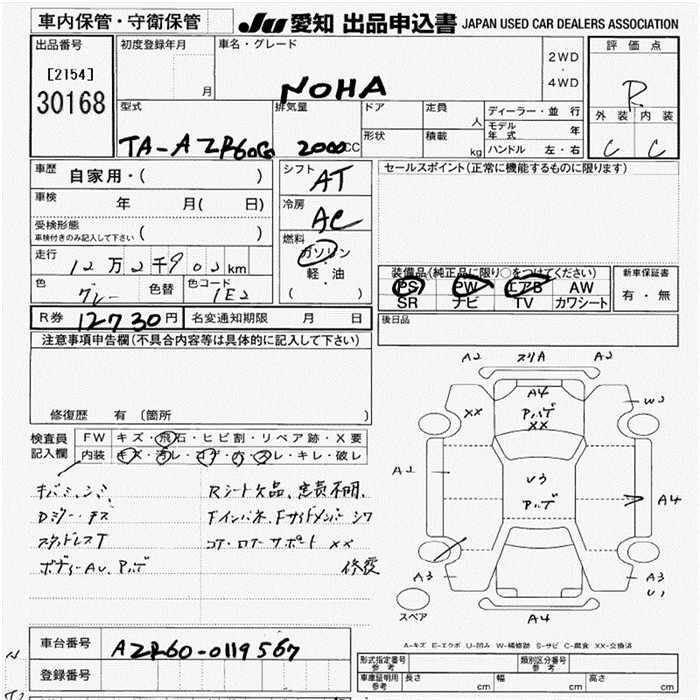 車内保管・守衛保管
JU 愛知 出品申込書 JAPAN USED CAR DEALERS ASSOCIATION
出品番号 初度登録年月 車名・グレード 評価点
[2154] 月 NOHA 2WD・4WD R
30168 型式 排気量 ドア 定員 人 ディーラー・並行 外装 内装
形状 積載 kg モデル年式 年
TA-AZR60G 2000CC ハンドル 左・右 C C
車歴 自家用・( ) シフト AT セールスポイント(正常に機能するものに限ります)
車検 年 月( 日) 冷房 AC
受検形態 車検付きのみ記入して下さい ( )
燃料 ガソリン・軽・油 ( )
走行 12万2千902km
装備品(純正品に限り○をつけてください) 新車保証書
色 グレー 色替 色コード 1E2 PS PW エアB AW 有・無
SR ナビ TV カワシート
R券 12730円 名変通知期限 月 日 後日品
注意事項申告欄(不具合内容等は具体的に記入して下さい)
修復歴 有 (箇所 )
検査員記入欄 FW キズ・飛石・ヒビ割・リペア跡・X要
内装 キズ・汚レ・コゲ・穴・スレ・キレ・破レ
Rシート欠品、定員不明、
スタッドレスT コア・ロアサポート XX
修復
A2 スリA A2
XX A4 W3
XX
A2 A4
A3 A3
スペア A4
A-キズ E-エクボ U-凹み W-補修跡 S-サビ C-腐食 XX-交換済
車台番号 AZR60-0119567
登録番号
形式指定番号 参考 類別区分番号 参考
車庫証明用 参考 長さ cm 幅 cm 高さ cm